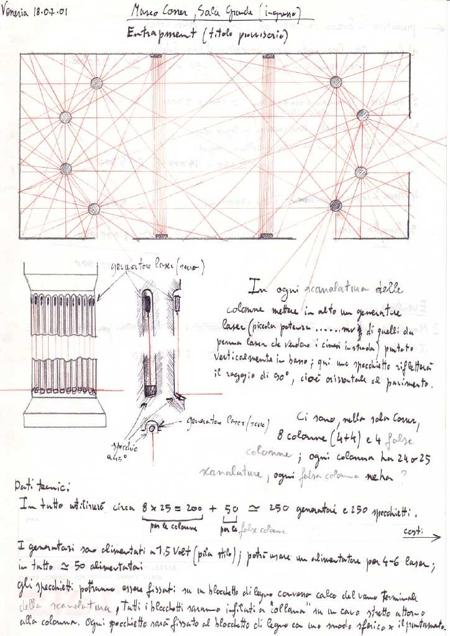 Venezia 18.07.01
Museo Correr, Sala Grande (ingresso)
Entrapment (titolo provvisorio)
generatore laser (rosso)
In ogni scanalatura delle
colonne mettere in alto un generatore
laser (piccola potenza ...... mW di quelli da
penna laser che vendono i cinesi in strada) puntato
verticalmente in basso; qui uno specchietto rifletterà
il raggio di 90°, cioè orizzontale al pavimento.
generatore laser (rosso)
specchio
a 45°
Ci sono, nella sala Correr,
8 colonne (4+4) e 4 false
colonne; ogni colonna ha 24 o 25
scanalature, ogni falsa colonna ne ha ?
Dati tecnici:
In tutto utilizzerò circa 8 x 25 = 200 + 50 ≃ 250 generatori e 250 specchietti.
per le colonne per le false colonne
costi:
I generatori sono alimentati a 1.5 Volt (pila stilo); potrei usare un alimentatore per 4-6 laser;
in tutto ≃ 50 alimentatori
gli specchietti potranno essere fissati su un blocchetto di legno convesso calco del vano terminale
della scanalatura. Tutti i blocchetti saranno infilati a "collana" su un cavo stretto attorno
alla colonna. Ogni specchietto sarà fissato al blocchetto di legno con uno snodo sferico x il puntamento.